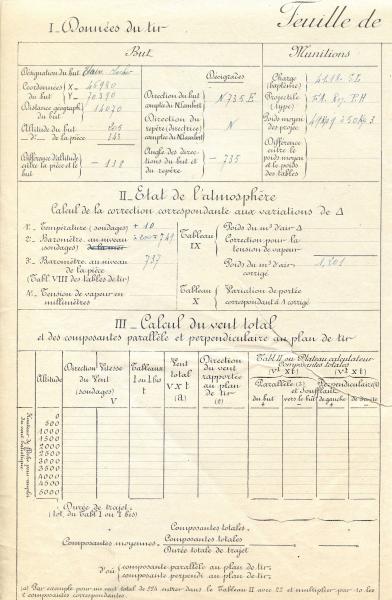 Feuille de
I_Données du tir
But
Munitions
Désignation du but
Coordonnées X_ 46980
du but Y_ 70390
Distance géograph. du but 14070
Altitude du but
_ d° _ de la pièce 143
Différence d'altitude entre la pièce et le but _ 138
Décigrades
Direction du but comptée du N Lambert N 735 E
Direction du repère (directrice) comptée du N Lambert N
Angle des directions du but et du repère _ 735
Charge (baptême)
Projectile (type)
Poids moyen des projec.
Différence entre le poids moyen et le poids des tables
II_Etat de l'atmosphère
Calcul de la correction correspondante aux variations de Δ
1°- Température (sondages) + 10
2°- Baromètre au niveau de la mer (sondages) 749
3°- Baromètre au niveau de la pièce 737
(Tabl. VIII des tables de tir)
4°- Tension de vapeur en millimètres
Tableau IX
Poids du m³ d'air Δ
Correction pour la tension de vapeur
Poids du m³ d'air corrigé 1,201
Tableau X
Variation de portée correspondant à Δ corrigé
III_Calcul du vent total
et des composantes parallèle et perpendiculaire au plan de tir
Altitude
Direction du Vent (sondages)
Vitesse V
Tableaux 1 ou 1 bis t
Vent total v x t (a)
Direction du vent rapportée au plan de tir
Tabl. II ou Plateau calculateur
Composantes totales
(v x t) (v x t)
Parallèle Perpendiculaire
et Soufflant
du but vers le but de gauche de droite
+ - + -
0
500
1000
1500
2000
2500
3000
3500
4000
4500
5000
Durée de trajet
(tot. du Tabl 1 ou 1 bis)
Composantes totales
Composantes moyennes = Composantes totales / Durée totale de trajet
d'où composante parallèle au plan de tir
composante perpendi au plan de tir
(a) Par exemple pour un vent total de 226 entrer dans le Tableau II avec 22 et multiplier par 10 les 2 composantes correspondantes.